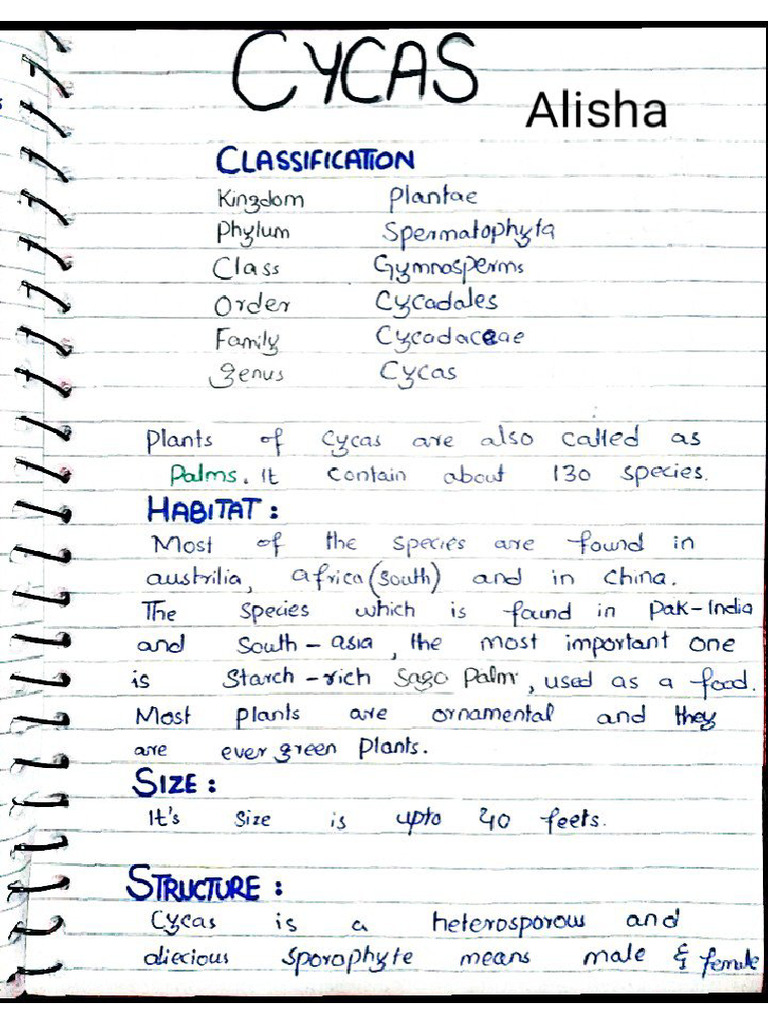 CYCAS
Alisha
CLASSIFICATION
Kingdom Plantae
Phylum Spermatophyta
Class Gymnosperms
Order Cycadales
Family Cycadaceae
genus Cycas
Plants of Cycas are also called as
Palms. It contain about 130 species.
HABITAT:
Most of the species are found in
austrilia, africa(south) and in china.
The species which is found in Pak-India
and South-asia, the most important one
is Starch-rich Sago Palm, used as a food.
Most plants are ornamental and they
are ever green plants.
SIZE:
It's size is upto 40 feets.
STRUCTURE:
Cycas is a heterosporous and
diecious sporophyte means male & female